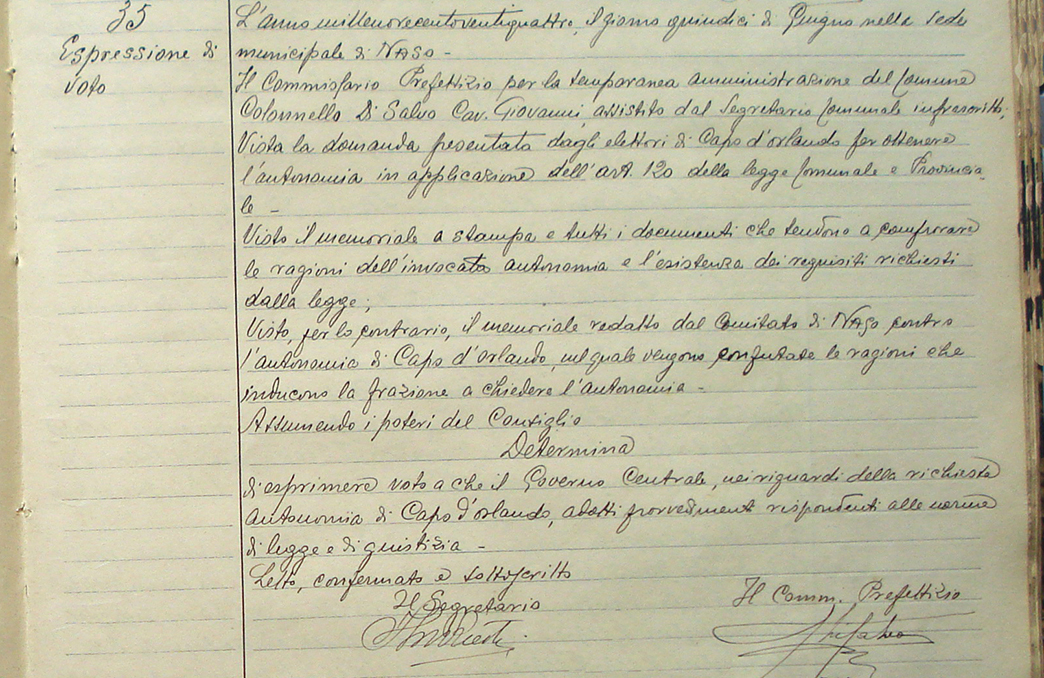 35
Espressione di
voto
L'anno millenovecentoventiquattro, il giorno quindici di Giugno nella sede
municipale di Naso -
Il Commissario Prefettizio per la temporanea amministrazione del Comune
Colonnello Di Salvo Cav. Giovanni, assistito dal Segretario Comunale infrascritto;
Vista la domanda presentata dagli elettori di Capo d'orlando per ottenere
l'autonomia in applicazione dell'art. 120 della legge Comunale e Provincia
le -
Visto il memoriale a stampa e tutti i documenti che tendono a comprovare
le ragioni dell'invocata autonomia e l'esistenza dei requisiti richiesti
dalla legge;
Visto, per lo contrario, il memoriale redatto dal Comitato di Naso contro
l'autonomia di Capo d'orlando, nel quale vengono confutate le ragioni che
inducono la frazione a chiedere l'autonomia -
Assumendo i poteri del Consiglio
Determina
di esprimere voto a che il Governo Centrale, nei riguardi della richiesta
autonomia di Capo d'orlando, adotti provvedimenti rispondenti alle norme
di legge e di giustizia -
Letto, confermato e sottoscritto
Il Segretario
Il Comm. Prefettizio